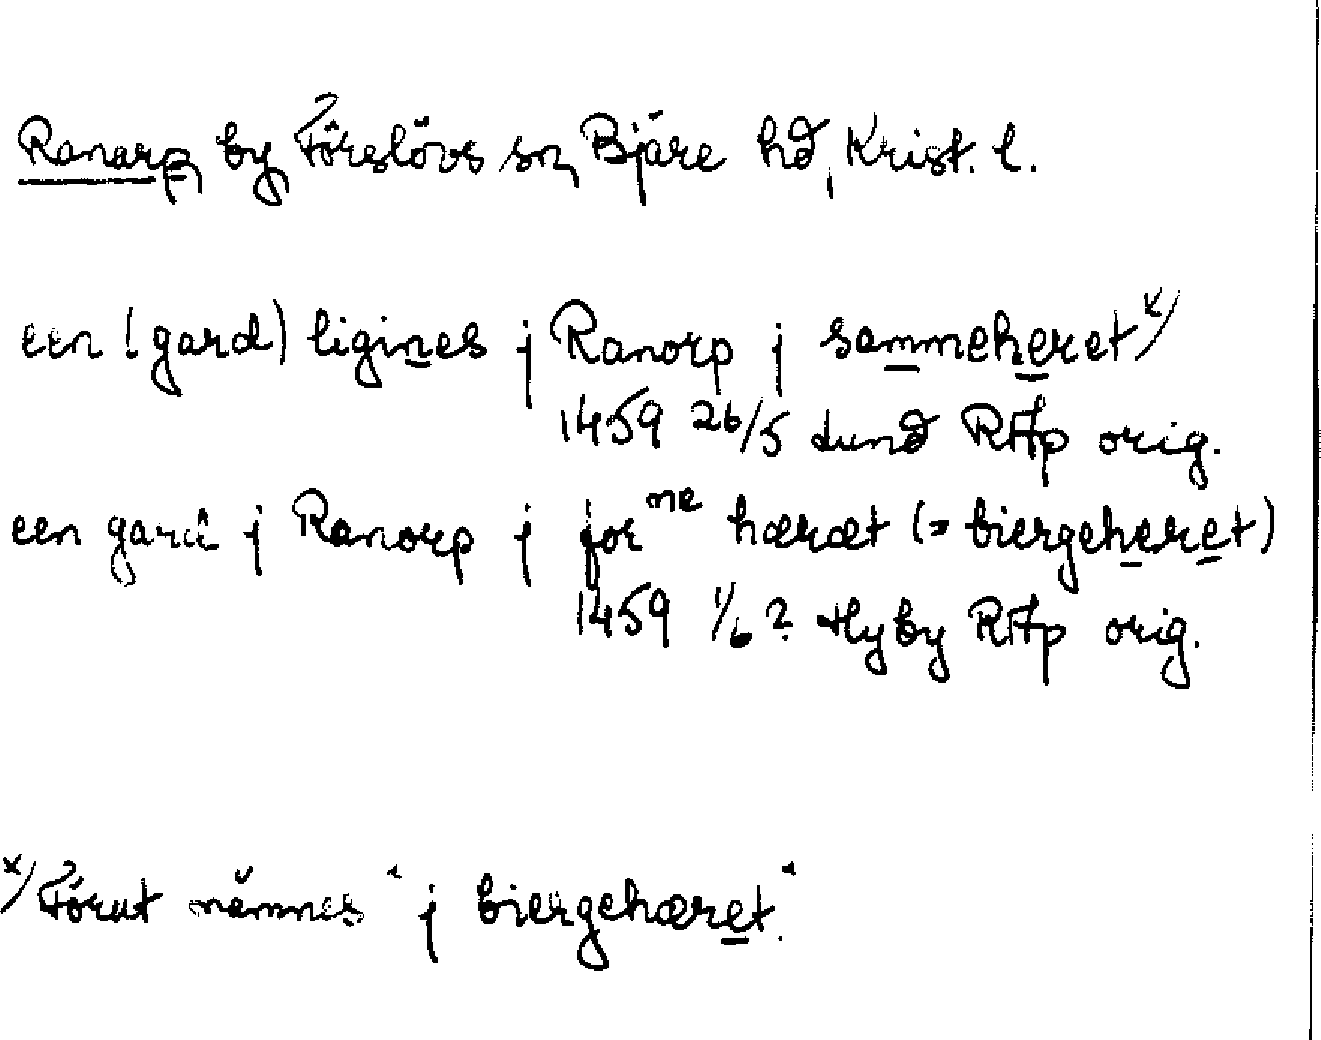 Ranarp by Förslövs sn Bjäre hd, Krist. l.
een (gard) ligines j Ranorp j sammeheret x/
1459 26/5 Lund RAp orig.
een gard j Ranorp j forne hæræt (= biergeheret)
1459 1/6? Hyby RAp orig.
x/ Förut nämnes "j biergehæret."